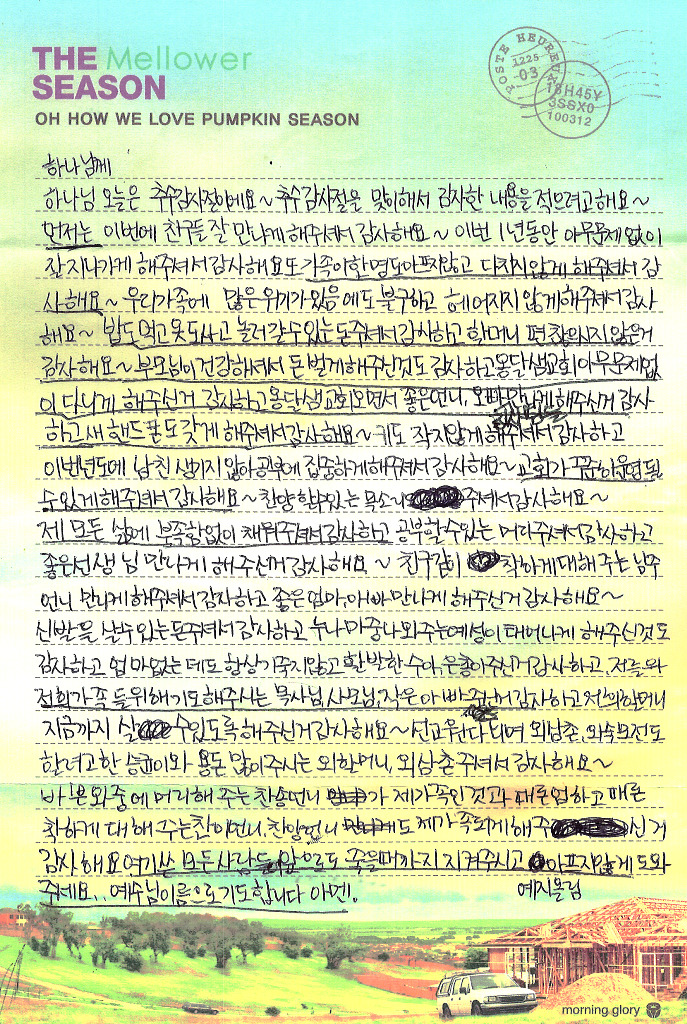 THE Mellower
SEASON
OH HOW WE LOVE PUMPKIN SEASON
POSTE HEUREUX
1225
03
18H45Y
3SSX0
100312
하나님께
하나님 오늘은 추수감사절이에요~ 추수감사절을 맞이해서 감사한 내용을 적으려고해요~
먼저는 이번에 친구들 잘 만나게 해주셔서 감사해요~ 이번 1년동안 아무문제없이
잘 지나가게 해주셔서 감사해요 또 가족이 한명도 아프지않고 다치지 않게 해주셔서 감
사해요~ 우리가족에 많은 위기가 있음에도 불구하고 헤어지지 않게해주셔서 감사
해요~ 밥도먹고 옷도사고 놀러갈수있는 돈주셔서 감사하고 할머니 편찮으시지 않은거
감사해요~ 부모님이 건강하셔서 돈 벌게해주신것도 감사하고 옹달샘교회 아무문제없
이 다니게 해주신거 감사하고 옹달샘교회 오면서 좋은언니, 오빠 만나게 해주신거 감사
하고 새 핸드폰도 갖게 해주셔서 감사해요~ 키도 작지않게 해주셔서 감사하고
이번년도에 남친 생기지 않아 공부에 집중하게 해주셔서 감사해요~ 교회가 꾸준히 운영될
수있게 해주셔서 감사해요~ 찬양할수있는 목소리 주셔서 감사해요~
제 모든 삶에 부족함없이 채워주셔서 감사하고 공부할수있는 머리주셔서 감사하고
좋은선생님 만나게 해주신거 감사해요~ 친구같이 착하게 대해주는 남주
언니 만나게 해주셔서 감사하고 좋은 엄마, 아빠 만나게 해주신거 감사해요~
신발을 살수있는돈주셔서 감사하고 누나 마중나와주는 예성이 태어나게 해주신것도
감사하고 엄마없는데도 항상 기죽지않고 활발한 수아, 은총이 주신거 감사하고, 저를 와
저희가족들 위해 기도해주시는 목사님, 사모님, 작은아빠 감사하고 저희할머니
지금까지 살 수있도록 해주신거 감사해요~ 선교원 다니며 외삼촌, 외숙모전도
할려고한 승균이와 용돈 많이주시는 외할머니, 외삼촌주셔서 감사해요~
바쁜와중에 머리해주는 찬송언니가 제가족인것과 때론엄하고 때론
착하게 대해주는 찬미언니, 찬양언니도 제가족되게 해주신거
감사해요 여기쓴 모든사람들 앞으로도 죽을때까지 지켜주시고 아프지않게 도와
주세요.. 예수님이름으로 기도합니다 아멘!
예지올림
morning glory